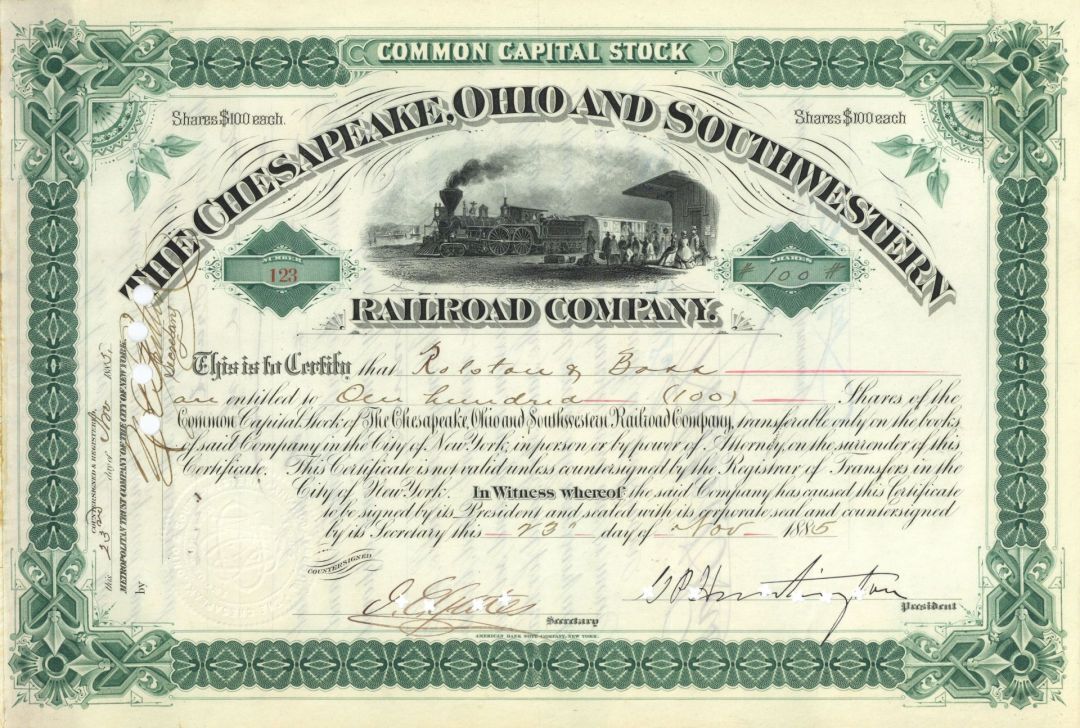 COMMON CAPITAL STOCK
Shares $100 each.
Shares $100 each
THE CHESAPEAKE, OHIO AND SOUTHWESTERN
RAILROAD COMPANY.
NUMBER
123
SHARES
# 100 #
This is to Certify that Rolston & Bass
are entitled to One hundred (100) Shares of the
Common Capital Stock of The Chesapeake, Ohio and Southwestern Railroad Company, transferable only on the books
of said Company in the City of New York, in person or by power of Attorney, on the surrender of this
Certificate. This Certificate is not valid unless countersigned by the Registrar of Transfers in the
City of New York. In Witness whereof the said Company has caused this Certificate
to be signed by its President and sealed with its corporate seal and countersigned
by its Secretary this 23 day of Nov 1885
COUNTERSIGNED
Secretary
C P Huntington
President
AMERICAN BANK NOTE COMPANY, NEW YORK.
COUNTERSIGNED & REGISTERED,
this 23rd day of Nov 1885.
METROPOLITAN TRUST COMPANY OF THE CITY OF NEW YORK.
by
Secretary